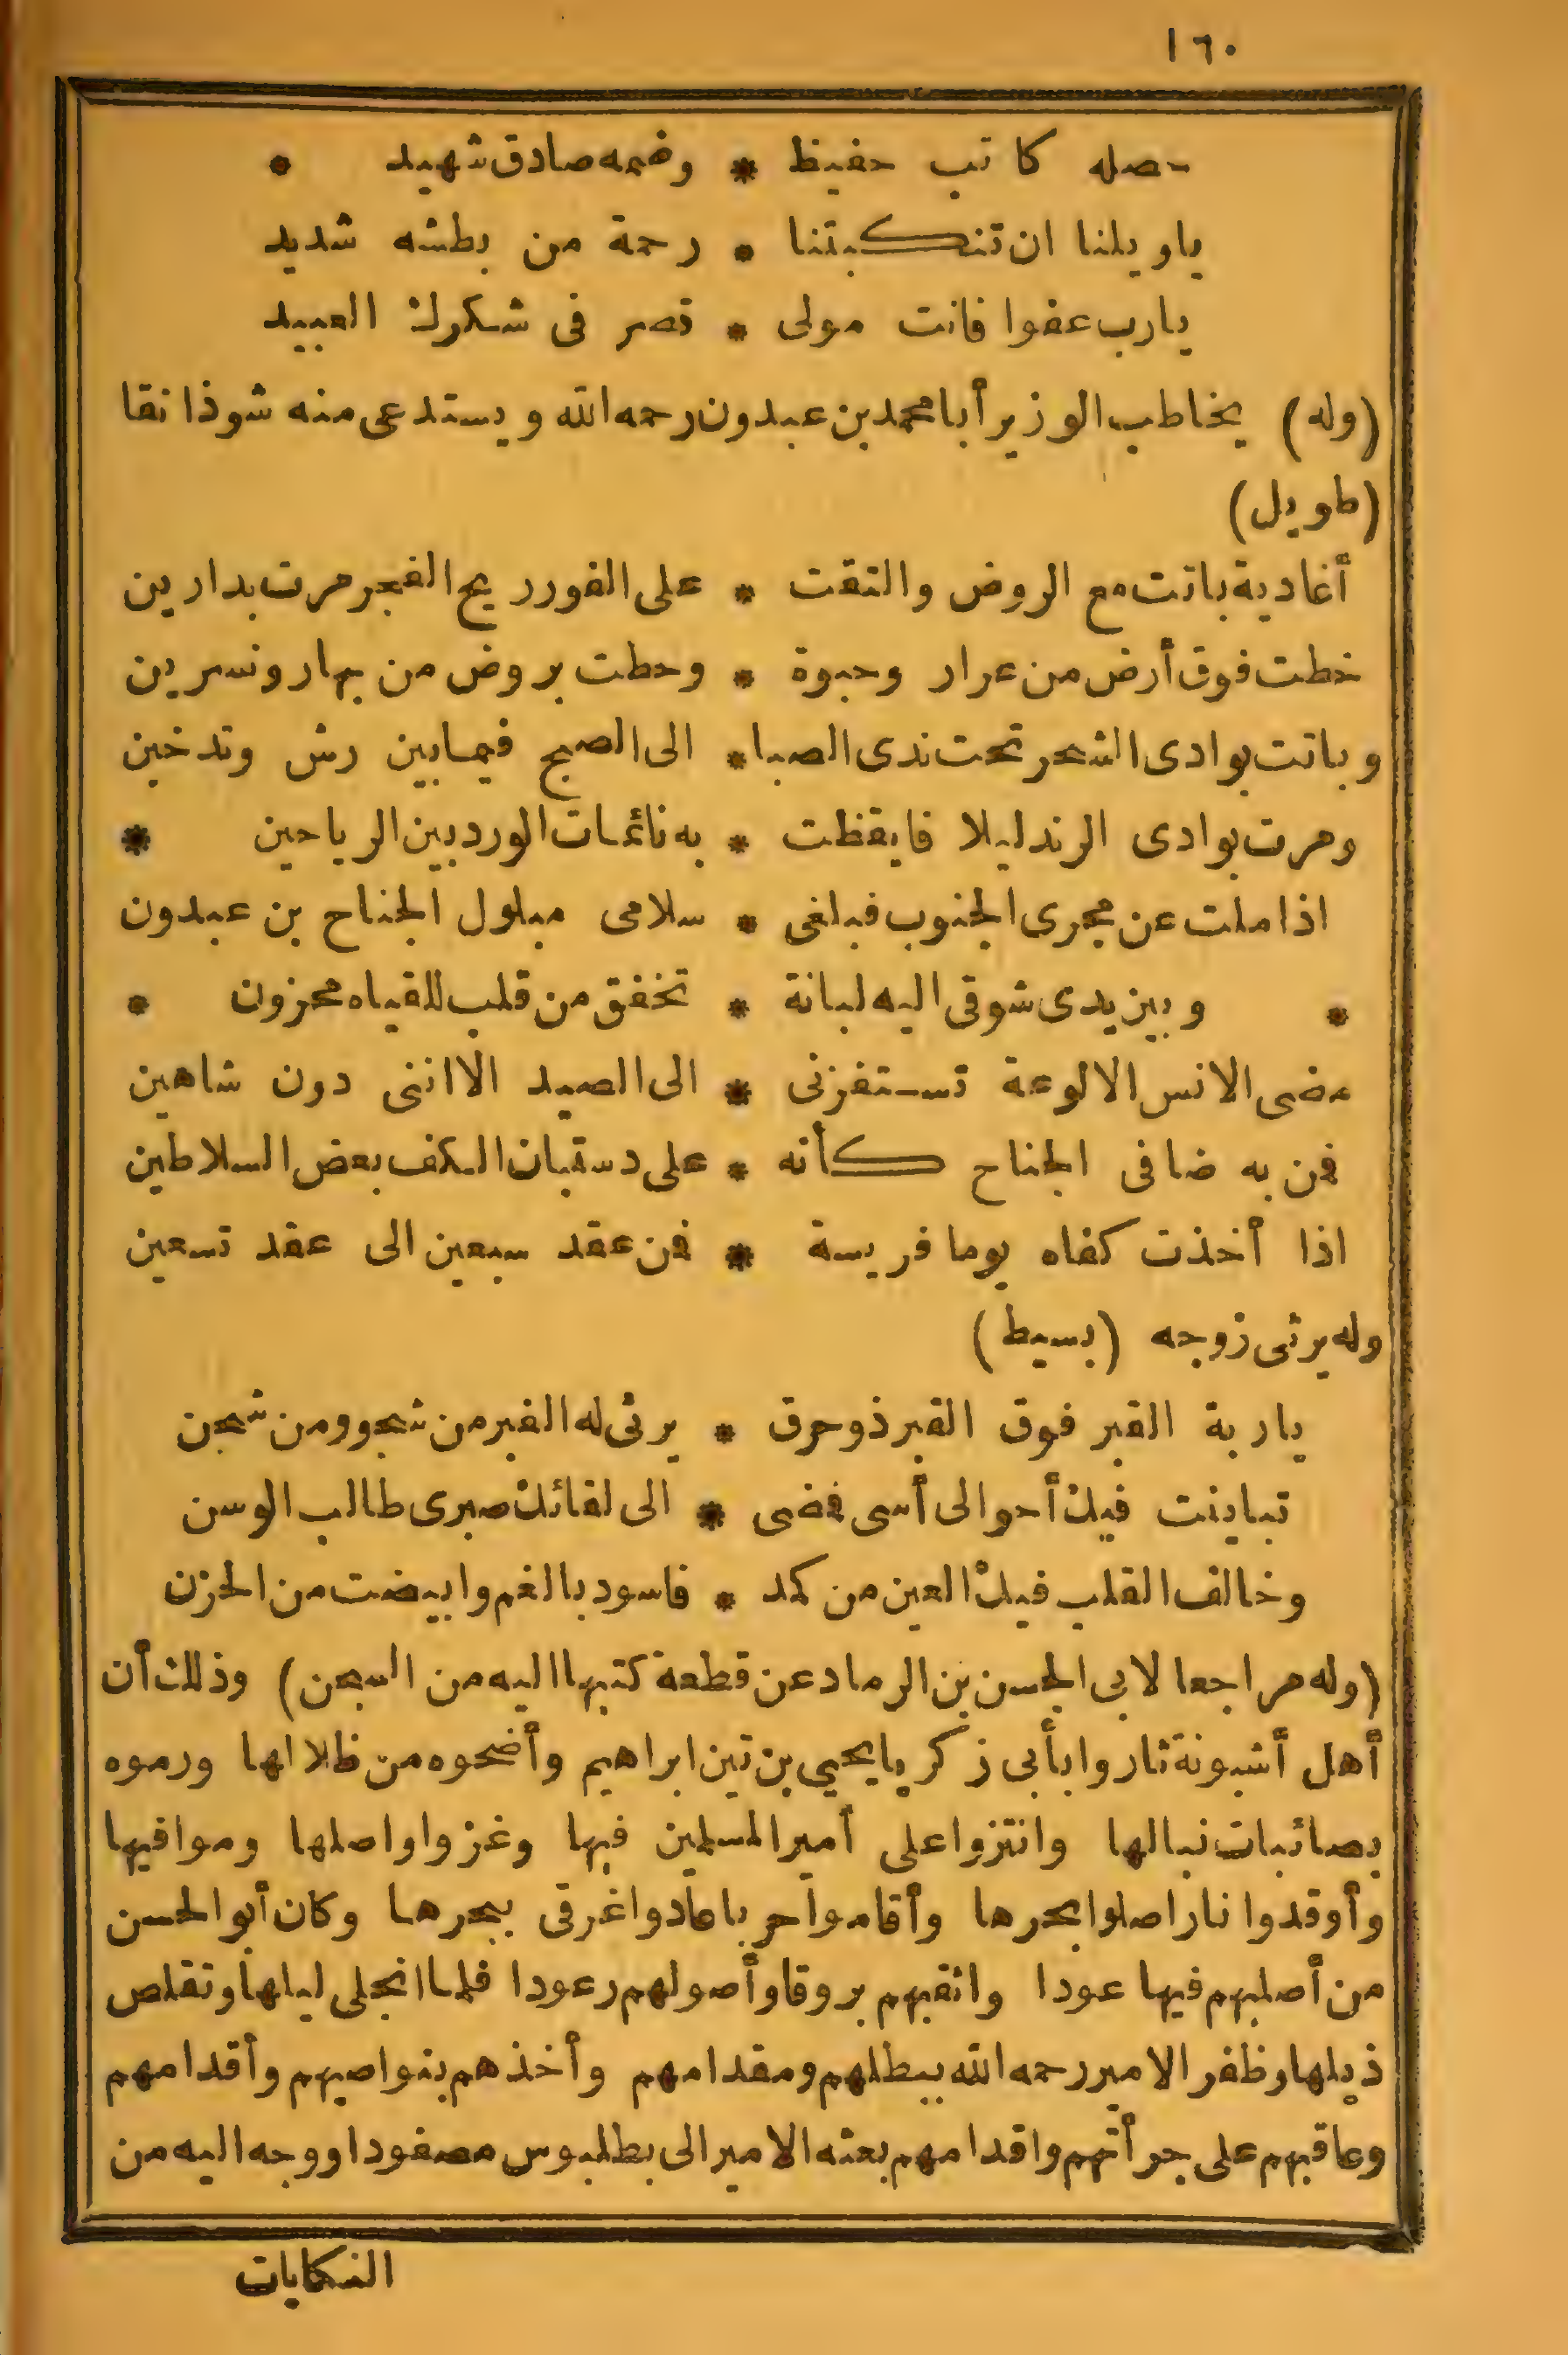 ١٦٠
حصله كاتب حفيظ * وضمه صادق شهيد *
ياويلنا ان تنكبتنا * رحمة من بطشه شديد
يارب عفوا فانت مولى * قصر فى شكرك العبيد
(وله) يخاطب الوزير أبا محمد بن عبدون رحمه الله ويستدعى منه شوذانقا
(طويل)
أغادية باتت مع الروض والتقت * على الغور ريح الفجر مرت بدارين
خطت فوق أرض من عرار وحبوة * وحطت بروض من بهار ونسرين
وباتت بوادى الشحر تحت ندى الصبا * الى الصبح فيما بين رش وتدخين
ومرت بوادى الرند ليلا فايقظت * به نائمات الورد بين الرياحين *
اذا ملت عن مجرى الجنوب فبلغى * سلامى مبلول الجناح بن عبدون
* وبين يدى شوقى اليه لبانة * تخفق من قلب للقياه محزون *
مضى الانس الا لوعة تستفزنى * الى الصيد الا اننى دون شاهين
فمن به ضافى الجناح كأنه * على دستبان الكف بعض السلاطين
اذا أخذت كفاه يوما فريسة * فمن عقد سبعين الى عقد تسعين
وله يرثى زوجه (بسيط)
ياربة القبر فوق القبر ذو حرق * يرثى له القبر من شجو ومن شجن
تباينت فيك أحوالى أسى فمضى * الى لقائك صبرى طالب الوسن
وخالف القلب فيك العين من كمد * فاسود بالغم وابيضت من الحزن
(وله مراجعا لابى الحسن بن الرماد عن قطعة كتبها اليه من السجن) وذلك أن
أهل أشبونة ثاروا بأبى زكريا يحيى بن تين ابراهيم وأضحوه من ظلالها ورموه
بصائبات نبالها وانتزوا على أمير المسلمين فيها وغزوا واصلها وموافيها
وأوقدوا نارا صلوا بحرها وأقاموا حربا عادوا غرقى ببحرها وكان أبو الحسن
من أصلبهم فيها عودا واثقبهم بروقا وأصولهم رعودا فلما انجلى ليلها وتقلص
ذيلها وظفر الامير رحمه الله ببطلهم ومقدامهم وأخذهم بنواصيهم وأقدامهم
وعاقبهم على جرأتهم واقدامهم بعثه الامير الى بطلبوس مصفودا ووجه اليه من
النكايات